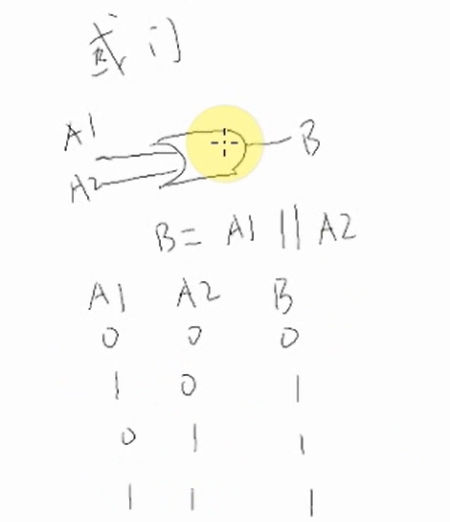 或门
A1
B
A2
B= A1 || A2
A1 A2 B
0 0 0
1 0 1
0 1 1
1 1 1